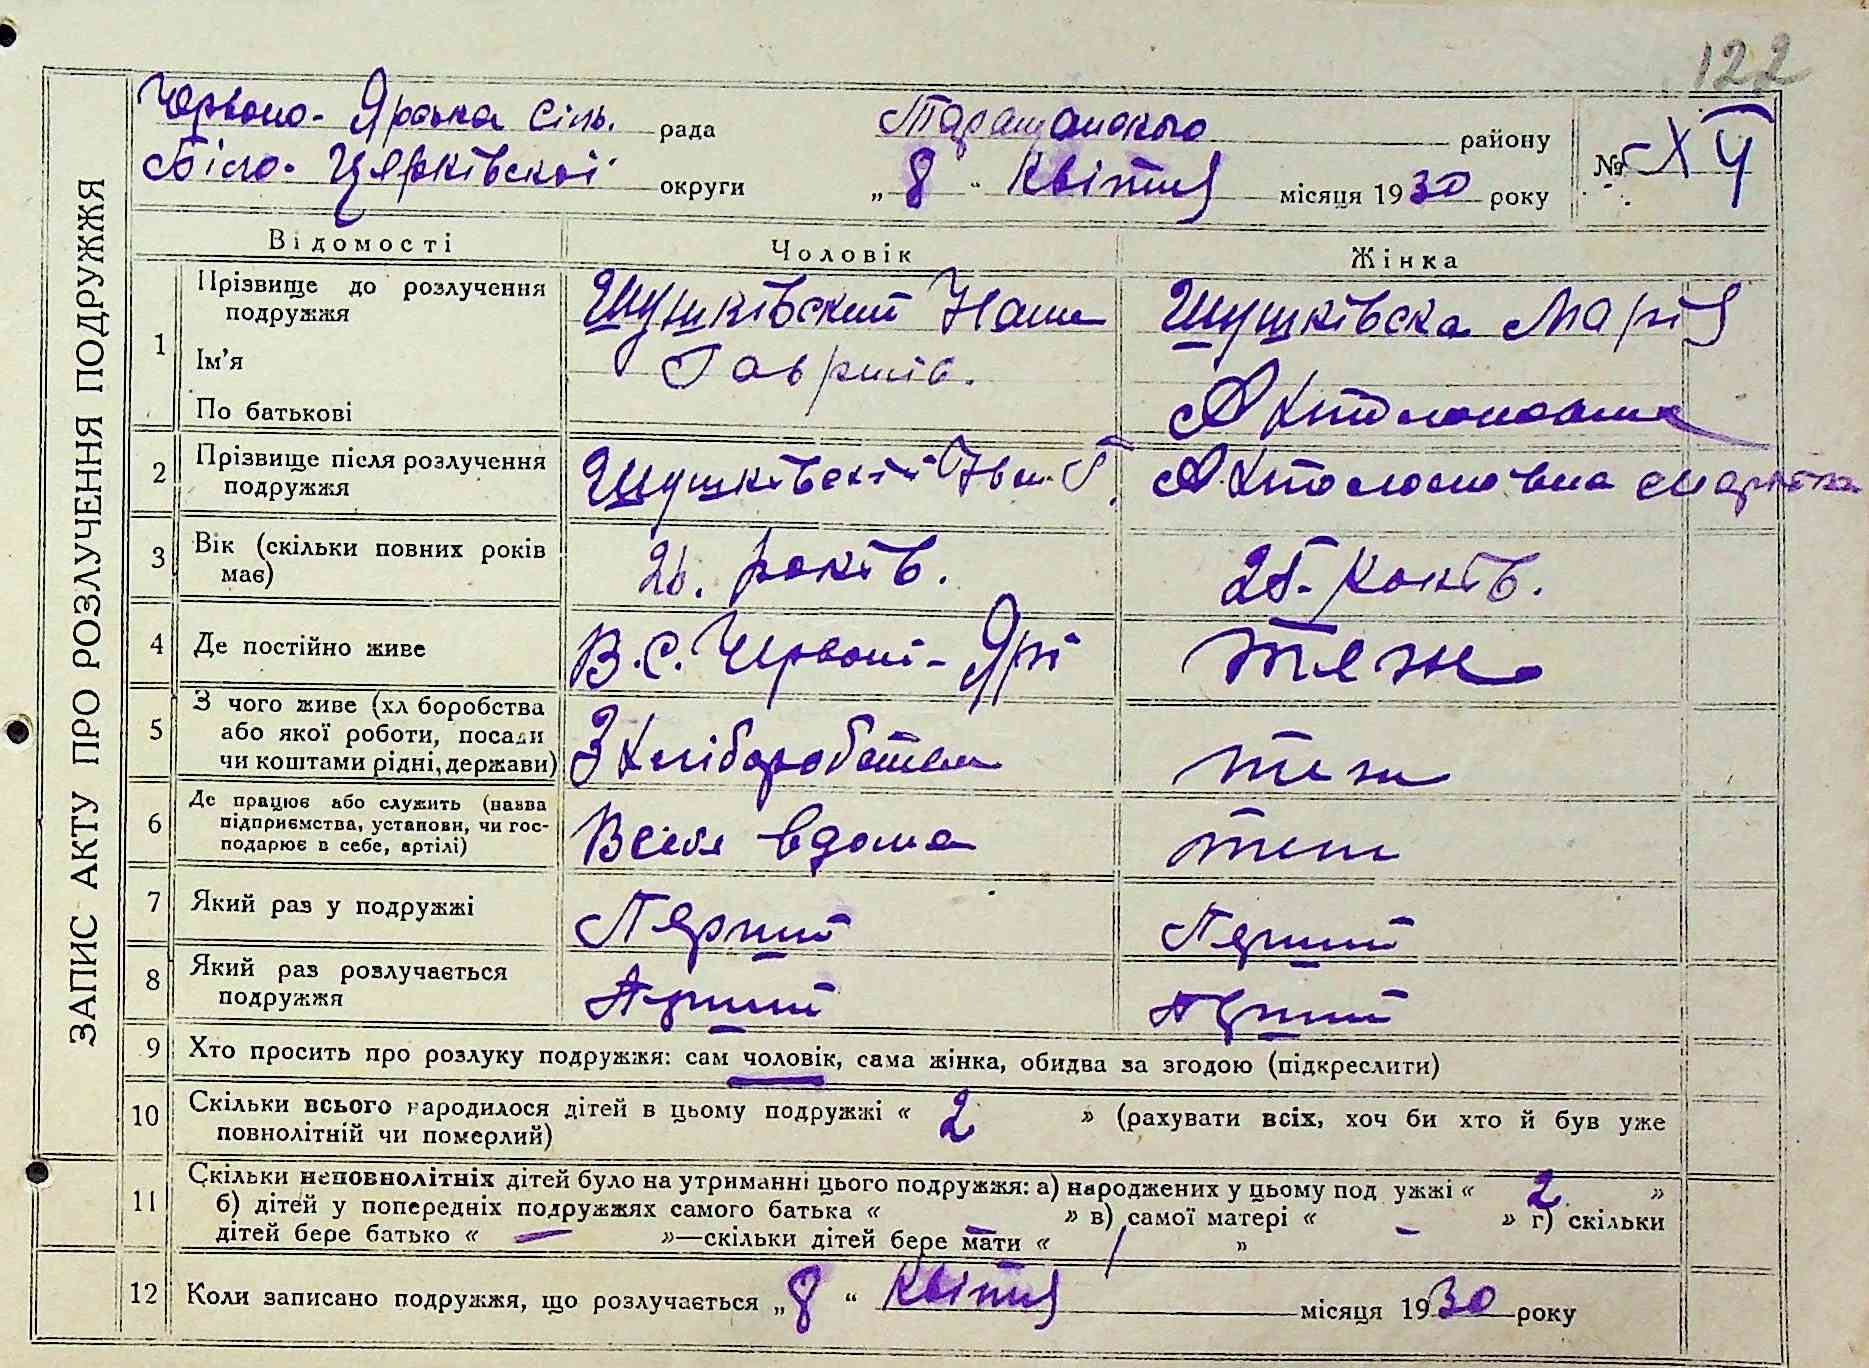 122
Червоно-Ярська сіль. рада Таращанского району
Біло-Церківскої округи „8“ Квітня місяця 1930 року № XV
ЗАПИС АКТУ ПРО РОЗЛУЧЕННЯ ПОДРУЖЖЯ
Відомості Чоловік Жінка
1 Прізвище до розлучення подружжя Шушківский Шушківска Марія
Ім'я Гаврилів.
По батькові
2 Прізвище після розлучення подружжя Шушківскій Іван Г.
3 Вік (скільки повних років має) 26. років. 25. років.
4 Де постійно живе В.С. Червоні-Ярі теж
5 З чого живе (хлiборобства або якої роботи, посади чи коштами рідні, держави) З Хліборобства теж
6 Де працює або служить (назва підприємства, установи, чи господарює в себе, артілі) В себе вдома теж
7 Який раз у подружжі Перший Перший
8 Який раз розлучається подружжя Перший Перший
9 Хто просить про розлуку подружжя: сам чоловік, сама жінка, обидва за згодою (підкреслити)
10 Скільки всього народилося дітей в цьому подружжі « 2 » (рахувати всіх, хоч би хто й був уже
повнолітній чи померлий)
11 Скільки неповнолітніх дітей було на утриманні цього подружжя: а) народжених у цьому подружжі « 2. »
б) дітей у попередніх подружжях самого батька « » в) самої матері « – » г) скільки
дітей бере батько « — »—скільки дітей бере мати « / »
12 Коли записано подружжя, що розлучається „8“ Квітня місяця 1930 року